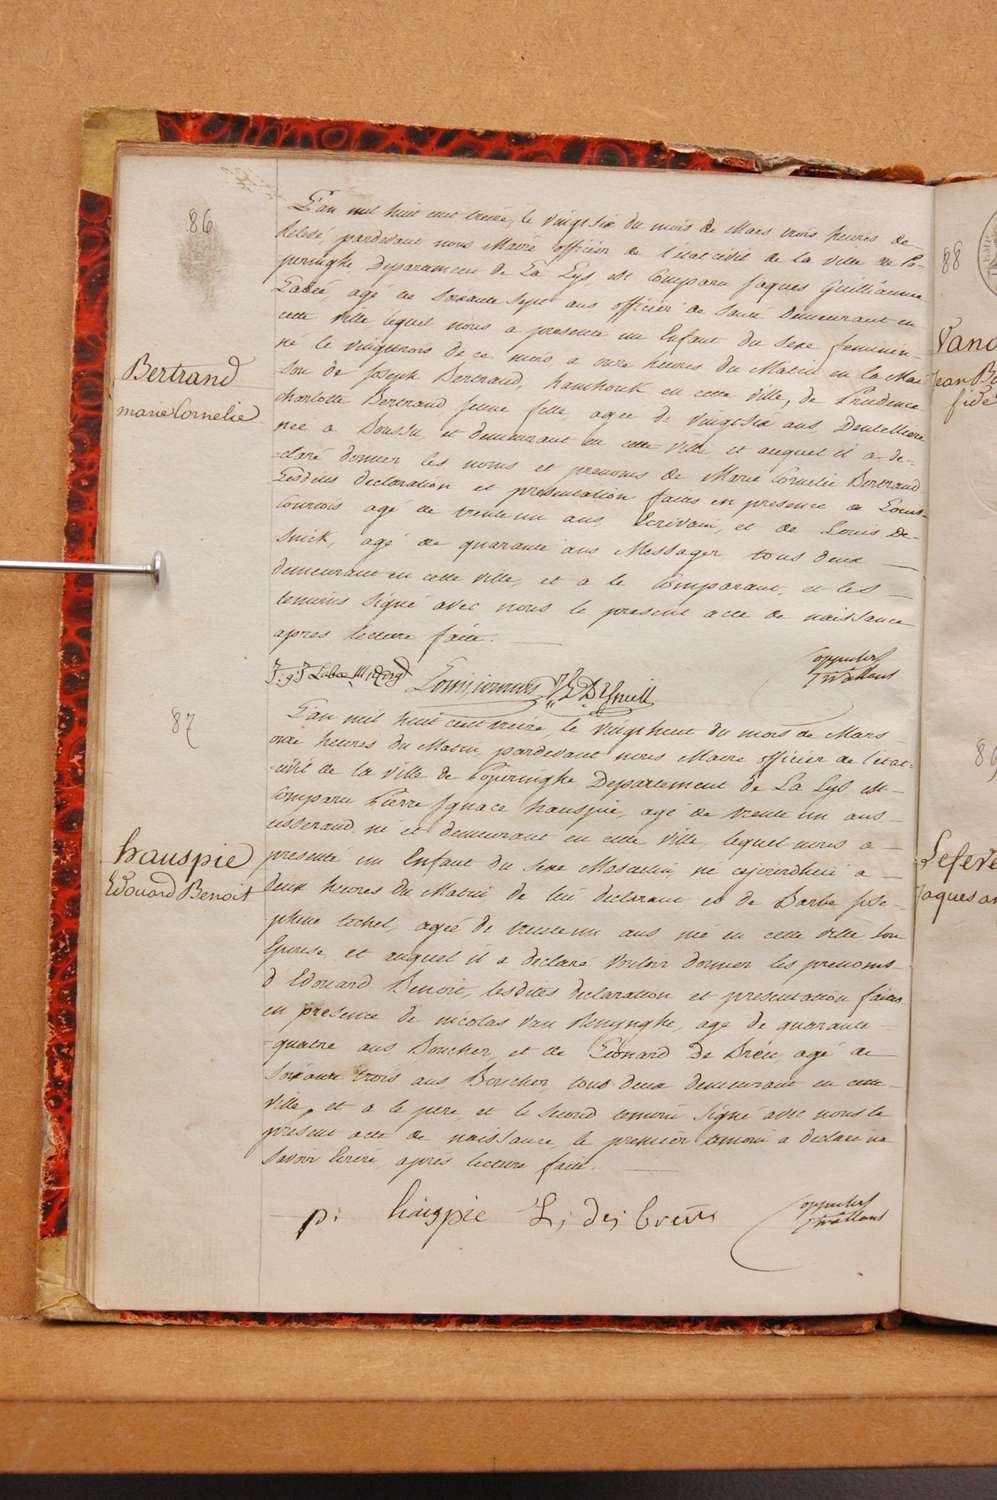 86
Bertrand
marie Cornelie
L'an mil huit cent treize, le vingt six du mois de Mars trois heures de
Relevé, pardevant nous Maire officier de l'état civil de la ville de Po-
peringhe Département de La Lys est Comparu Jaques Guilliaume
Labeé, agé de soixante sept ans officier de Santé demeurant en
cette ville lequel nous a presenté un Enfant du sexe feminin
né le vingt trois de ce mois, a onze heures du Matin en la Mai-
son de Joseph Bertrand, en cette ville, de Prudence
charlotte Bertrand jeune fille, agée de vingt six ans, Dentelliere
née a Boussu, et demeurant en cette ville et auquel il a de-
=claré donner les noms et prenoms de Marie Cornelie Bertrand
Lesdites declaration et presentation faites en presence de Louis
Courtois agé de trente un ans Ecrivain, et de Louis De-
Snick, agé de quarante ans Messager tous deux
demeurant en cette ville, et a le Comparant, et les
temoins Signé avec nous le present acte de naissance
après lecture faite.
87
hauspie
Edouard Benoit
L'an mil huit cent treize, le vingt huit du mois de Mars
onze heures du Matin, pardevant nous Maire officier de l'etat-
-civil de la ville de Poperinghe Departement de La Lys est
Comparu Pierre Ignace hauspie, agé de trente un ans
tisserand, né et demeurant en cette ville, lequel nous a
presenté un Enfant du sexe Masculin, né cejourdhui a
deux heures du Matin de lui declarant et de Barbe Jose-
phine agée de trente un ans née en cette ville son
Epouse, et auquel il a declaré vouloir donner les prenoms
d'Edouard Benoit, lesdites declaration et presentation faites
en presence de nicolas Van Renynghe, agé de quarante
-quatre ans Boucher, et de Léonard De Brëu agé de
soixante trois ans Boucher, tous deux demeurant en cette
ville, et a le pere, et le second temoin Signé avec nous le
present acte de naissance, le premier temoin a declaré ne
savoir Ecrire, après lecture faite.
p: haispie L; de;
88
Vand
Jean Ba
fide
89
Lefeve
Jaques an